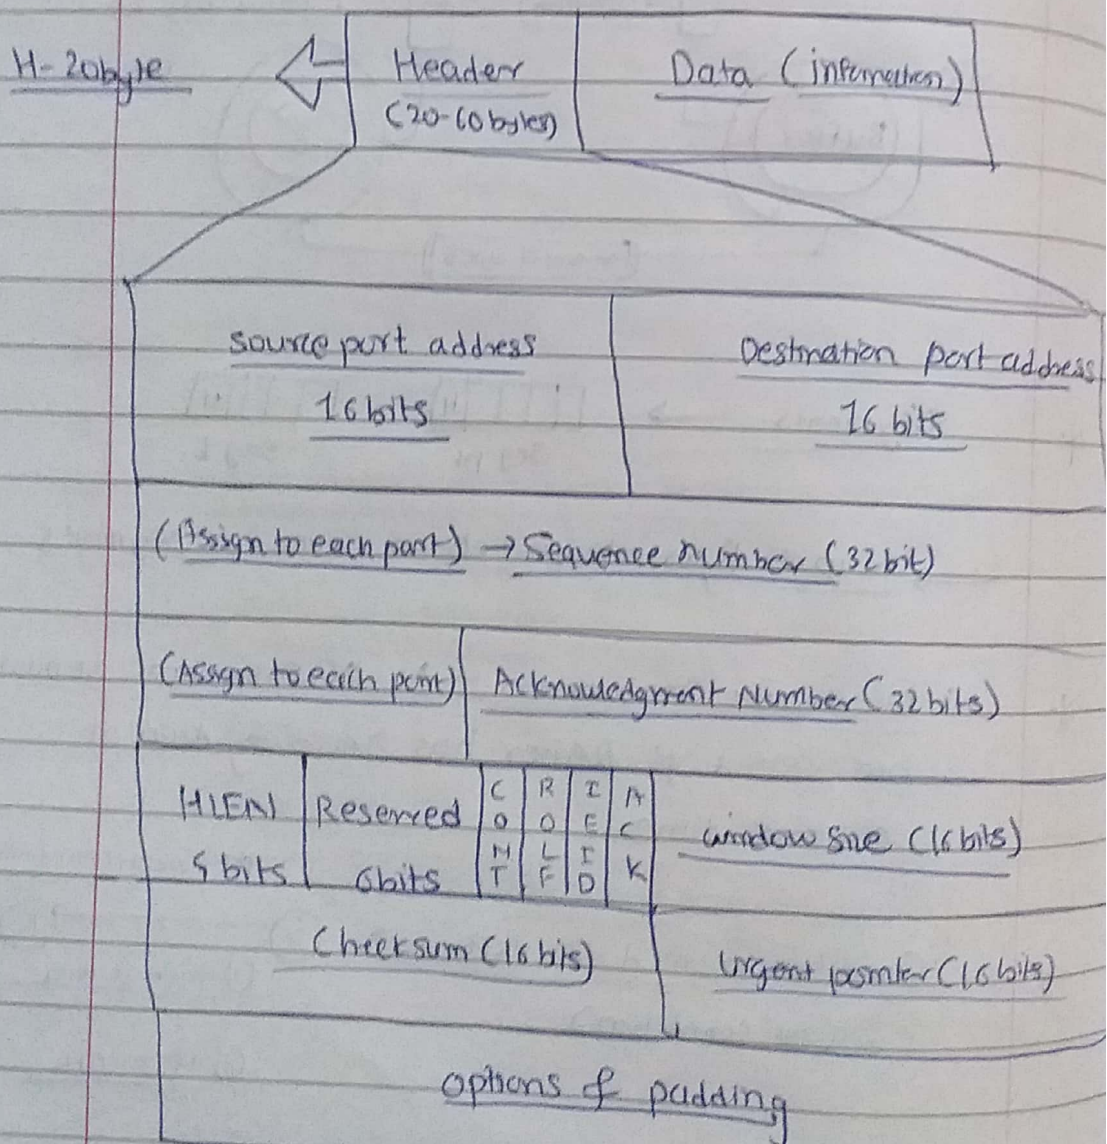 H-20byte
Header
(20-60bytes)
Data (information)
source port address
16 bits
Destination port address
16 bits
(Assign to each part) → Sequence number (32 bit)
(Assign to each part) Acknowledgment Number (32 bits)
HLEN
bits
Reserved
6bits
C
O
N
T
R
O
L
F
I
E
I
D
A
C
K
window size (16 bits)
Checksum (16 bits)
Urgent pointer (16 bits)
options & padding